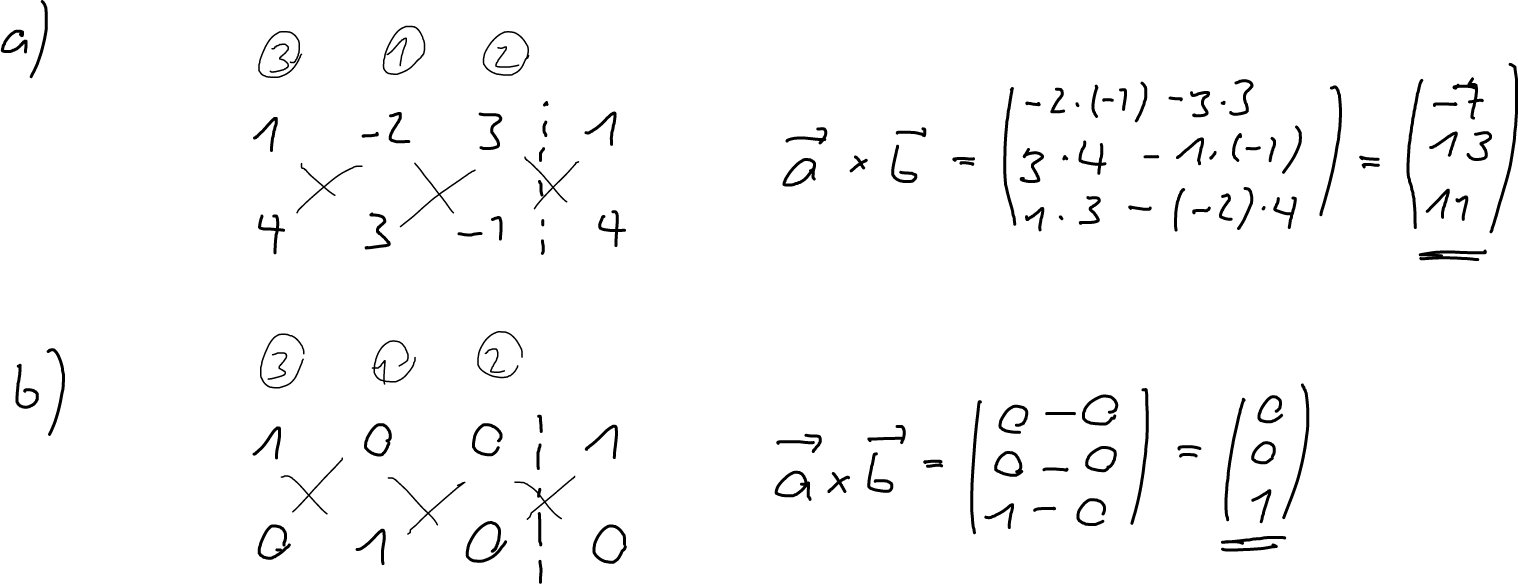 a)
③ ① ②
1 -2 3 ¦ 1
4 3 -1 ¦ 4
a⃗ × b⃗ = ( -2·(-1) -3·3
3·4 - 1·(-1)
1·3 - (-2)·4 ) = ( -7
13
11 )
b)
③ ① ②
1 0 0 ¦ 1
0 1 0 ¦ 0
a⃗ × b⃗ = ( 0 - 0
0 - 0
1 - 0 ) = ( 0
0
1 )